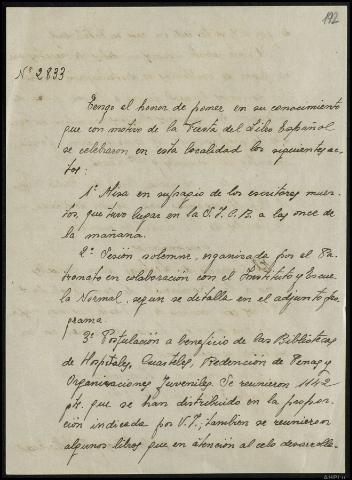 192
Nº 2833
Tengo el honor de poner en su conocimiento
que con motivo de la Fiesta del Libro Español
se celebraron en esta localidad los siguientes ac-
tos:
1º Misa en sufragio de los escritores muer-
tos, que tuvo lugar en la S.I.C.B. a las once de
la mañana.
2º Sesión solemne, organizada por el Pa-
tronato en colaboración con el Instituto y Escue
la Normal, segun se detalla en el adjunto pro-
grama.
3º Postulación a beneficio de las Bibliotecas
de Hospitales, Cuarteles, Redención de Penas y
Organizaciones Juveniles. Se reunieron 1142
pts. que se han distribuido en la propor-
ción indicada por V.I.; tambien se reunieron
algunos libros que en atención al celo desarrolla-